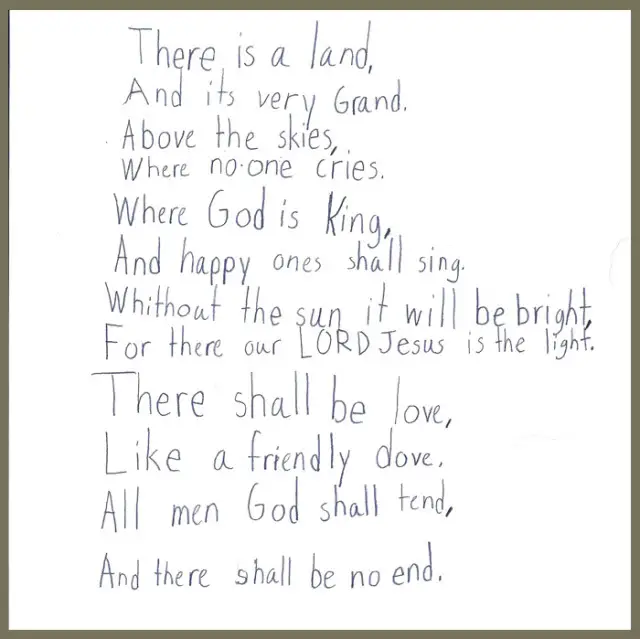 There is a land,
And its very Grand.
Above the skies,
Where no-one cries.
Where God is King,
And happy ones shall sing.
Whithout the sun it will be bright,
For there our LORD Jesus is the light.
There shall be love,
Like a friendly dove.
All men God shall tend,
And there shall be no end.